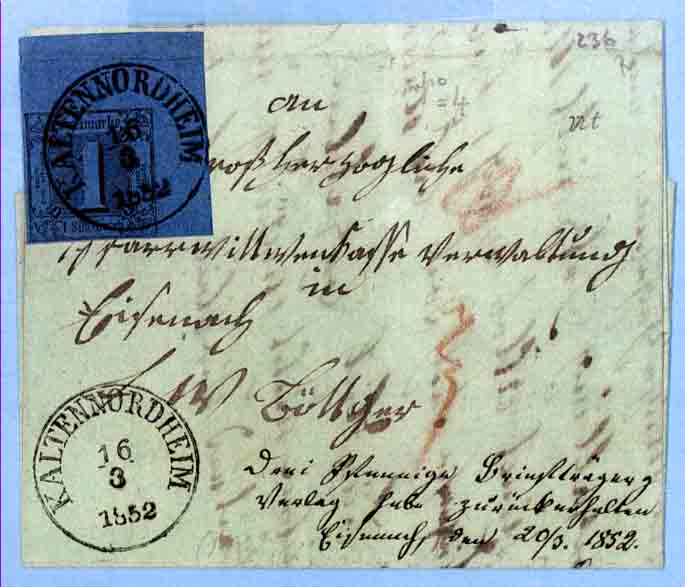 KALTENNORDHEIM
16
3
1852
1
236
an
=4
nt
Großherzogliche
Pfarrwittwenkasse Verwaltung
in
Eisenach
Böttger
KALTENNORDHEIM
16
3
1852
Drei Pfennige Briefträger
Verlag habe zurückerhalten
Eisenach, den 20/3. 1852.